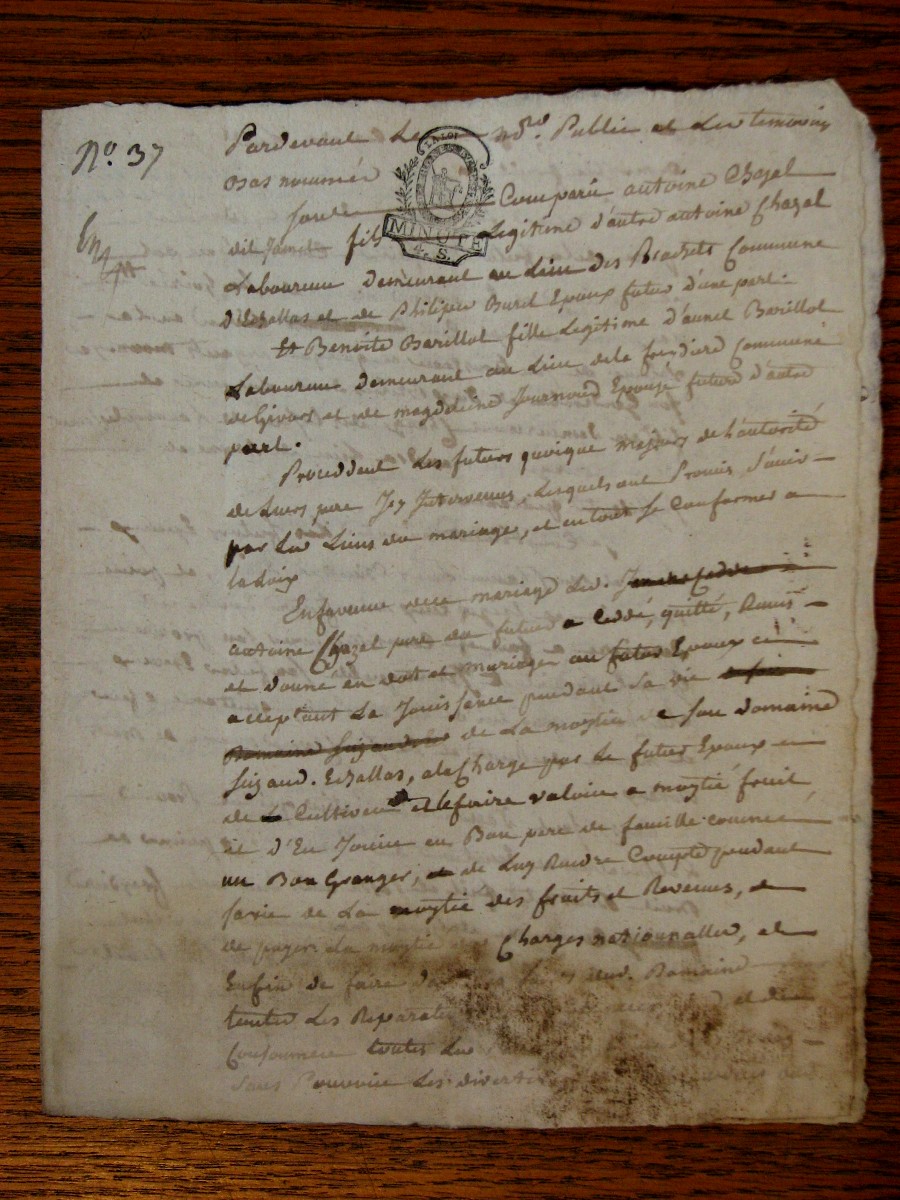 No. 37
Pardevant Le nore Public et Les temoins
Bas nommés
LA LOI
MINUTE
4. S.
Comparu antoine Chazal
dit fils Legitime d'autre antoine Chazal
Laboureur Demeurant au Lieu des Rachets Commune
D'Echallas et de Philipee Burel Epoux futur d'une part.
Et Benoite Barillot fille Legitime d'aunet Barillot
Laboureur Demeurant au Lieu dela freydiere Commune
de Givors et de magdeleine Journoud Epouze future d'autre
part.
Proceddent Les futurs quoique majeurs de L'autorité
de Leurs pere Icy Intervenus, Lesquels ont Promis S'unir
par Les Liens du mariage, et en tout se conformer a
la Loix
En faveur de ce mariage Led.
antoine Chazal pere du futur a ceddé, quitté, Remis
et donné en dot et mariage au futur Epoux ce
acceptant La Jouissance pendant sa vie
de La moytié de son Domaine
Suzaud. Echallas, ala Charge par Le futur Epoux
de Le Cultiver et le faire valoir a moytié fruit
et d'En Jouir en Bon pere de famille comme
un Bon Granger, et de Luy Rendre Compte pendant
sa vie de La moytié des fruits et Revenus, et
de payer La moytié Charges nationnalles, et
Enfin de faire Domaine
toutes Les Reparations et de
Consommer toutes Les
Sans Pouvoir Les divertir